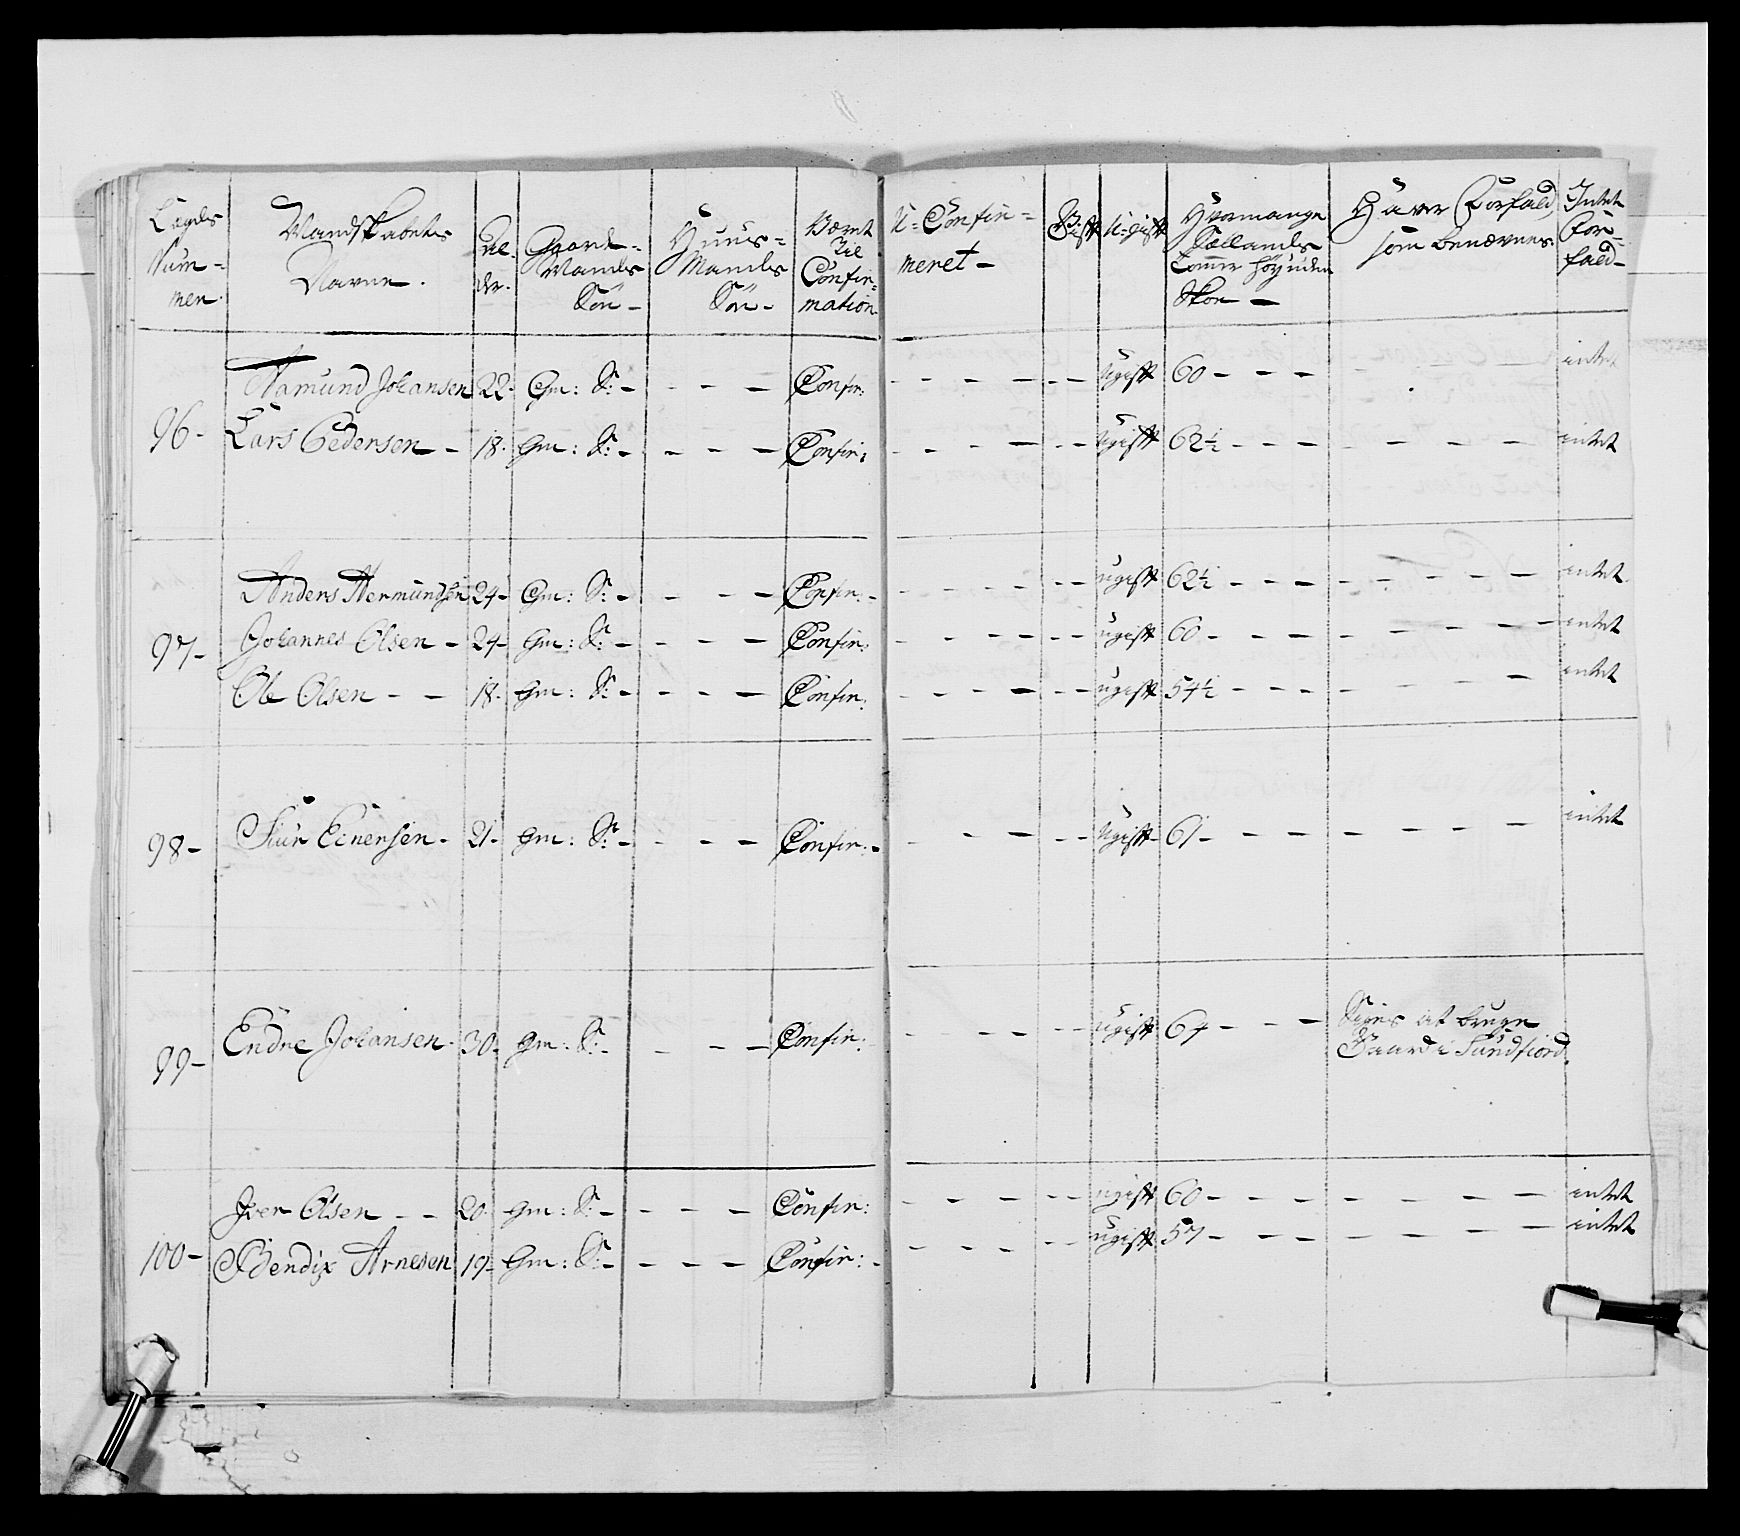 Lægds Num- mer. | Mandskabets Navne. | Al- der. | Gaard- Mands Søn - | Huus- Mands Søn - | Været Til Confir- mation | U-Confir- meret - | Gift | U-gift | Hvormange Sællands Tommer høy uden Skoe - | Haver Forfald, som benævnes. | Intet For- fald -
Aamund Johansen | 22. | Gm: S: - | - - - | Confir: | - - - - | - - | Ugift | 60 - - - | - | intet
96 - | Lars Pedersen - - | 18. | Gm: S: - | - - - | Confir: | - - - - | - - | Ugift | 62½ - - - | - - - - | intet
Anders Hermundsen | 24 - | Gm: S: - | - - - | Confir: - | - - - - | - - | ugift | 62½ - - - | - - - - - | intet.
97 - | Johannes Olsen - | 24 - | Gm: S: - | - - - | Confir: | - - - - | - - | ugift | 60 - - - - | - - - - - | intet
Ole Olsen - - | 18. | Gm: S: - | - - - - | Confir: | - - - - | - - | ugift | 54½ - - - | - - - - | intet
98 - | Siur Einersen - | 21 - | Gm: S: - | - - - | Confir: - | - - - | - - | Ugift - | 61 - - - - | - - - - - | intet
99 - | Endre Johansen - | 30 - | Gm: S: - | - - - | Confir: | - - - | - - | ugift | 64 - - - | Siges at bruge
Gaard i Sundfiord.
Joer Olsen - - | 20. | Gm: S: - | - - - | Confir: | - - - - | - - | ugift | 60 - - - - | - - - - - | intet
100 - | Bendix Arnesen | 19 - | Gm: S: - | - - - - | Confir: - | - - - | - - | ugift | 57 - - - - | - - - | intet